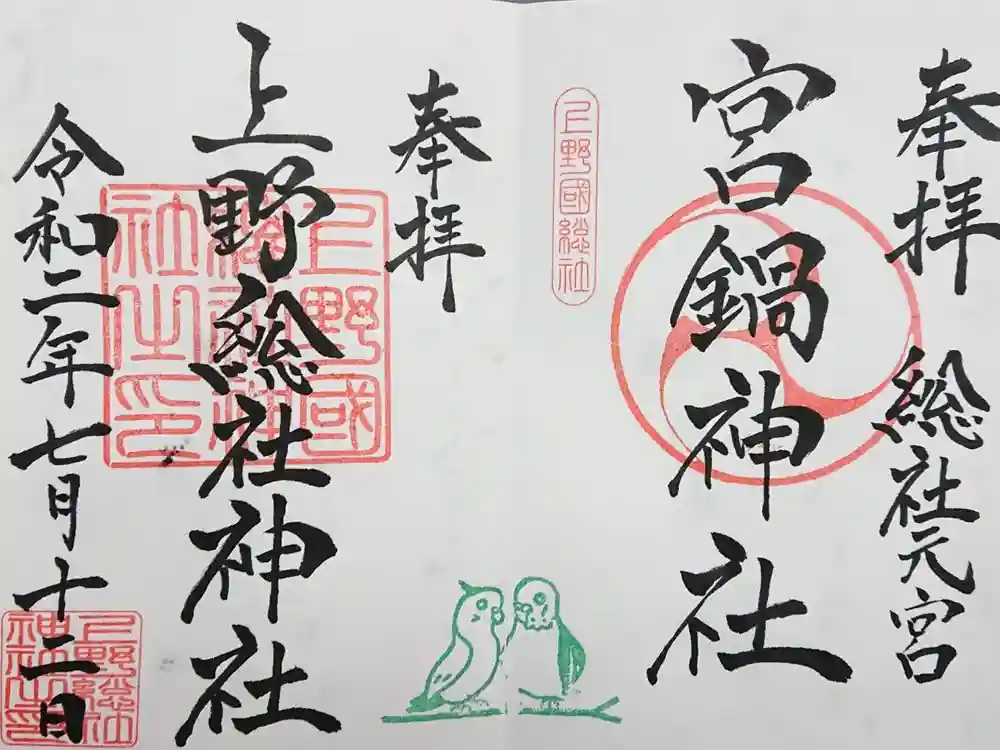 奉拝 総社元宮
宮鍋神社
上野國総社
奉拝
上野総社神社
上野國
総社神
社之印
令和二年七月十二日
上野総社
神社之印